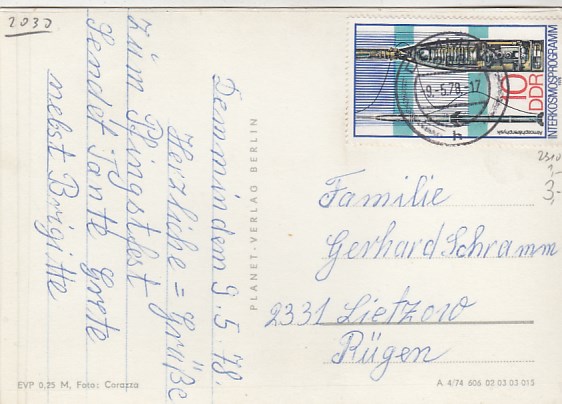 2030
Demmin den 9.5.78.
Herzliche = Grüße
zum Pfingstfest
sendet Tante Grete
nebst Brigitte
PLANET-VERLAG BERLIN
EVP 0,25 M, Foto: Corazza
10
DDR
INTERKOSMOSPROGRAMM
Atmosphärenphysik
9.-5.78-17
h
2310
3,-
Familie
Gerhard Schramm
2331 Lietzow
Rügen
A 4/74 606 02 03 03 015